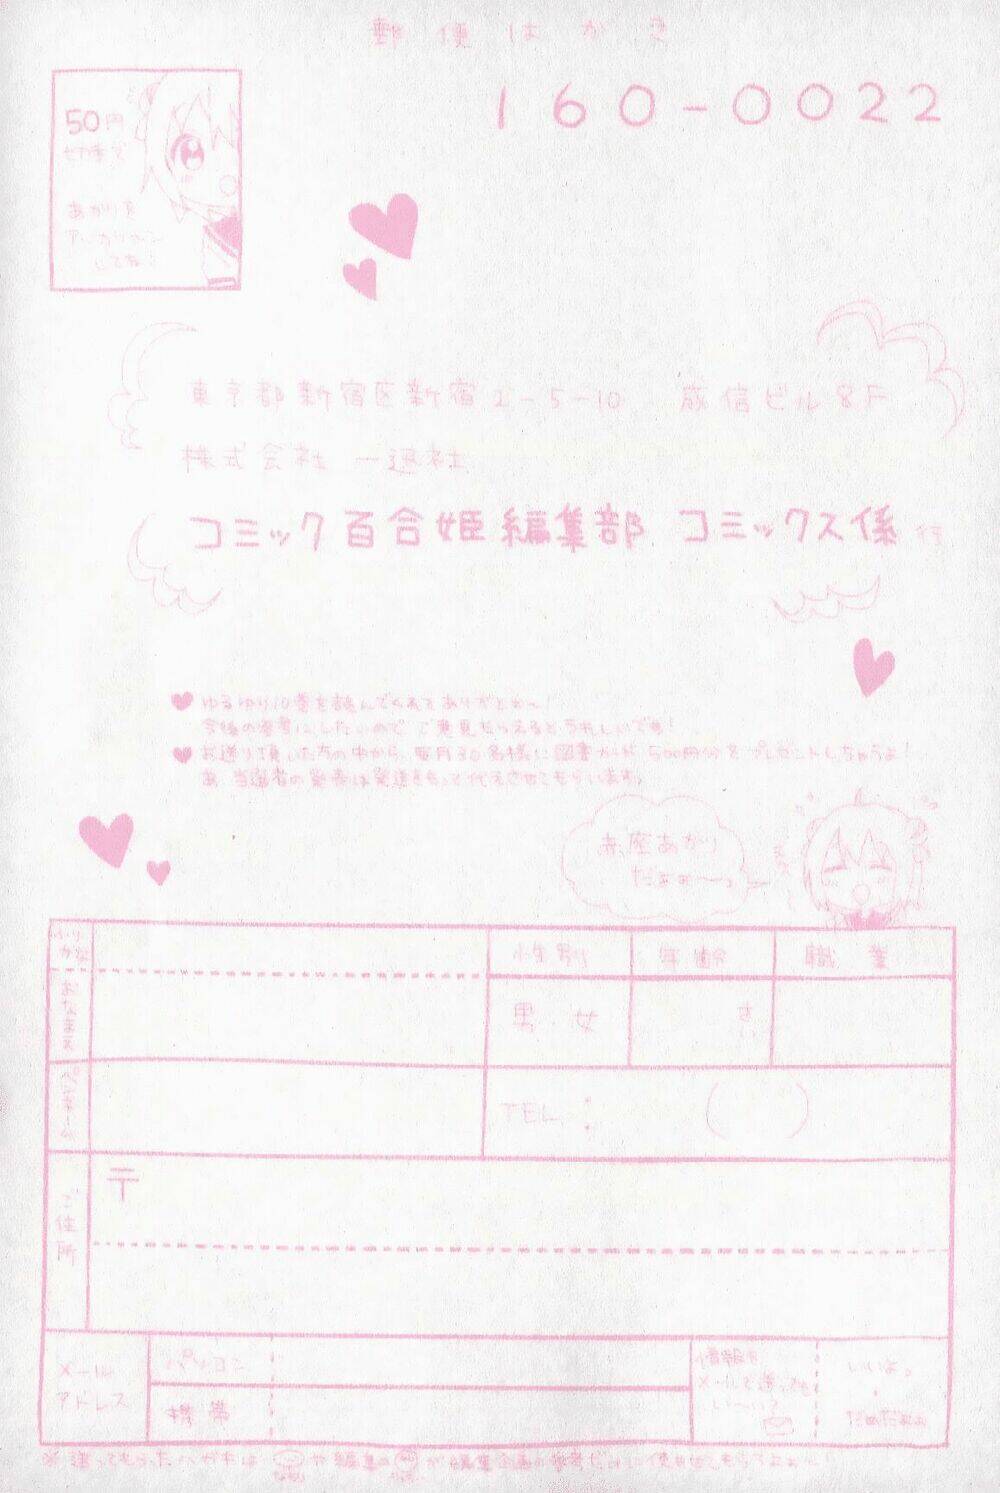 郵便はがき
160-0022
50円
切手で
あかりを
アッカリ～ン
してね♪
東京都新宿区新宿2-5-10 成信ビル8F
株式会社 一迅社
コミック百合姫編集部 コミックス係 行
♥ ゆるゆり10巻を読んでくれてありがとぉ～!
今後の参考にしたいので ご意見もらえるとうれしいです!
♥ お送り頂いた方の中から、毎月30名様に図書カード 500円分をプレゼントしちゃうよ!
あ、当選者の発表は発送をもって代えさせてもらいます。
赤座あかり
だよぉ～っ
ふりがな
おなまえ
性別
年齢
職業
男・女
さい
ペンネーム
TEL: ( )
ご住所
〒
メールアドレス
パソコン
携帯
情報を
メールで送っても
い～い?
いいよっ
・
だめだよぉ
※送ってもらったハガキは なもり や編集の が編集企画の参考だけに使わせてもらうよぉ～!